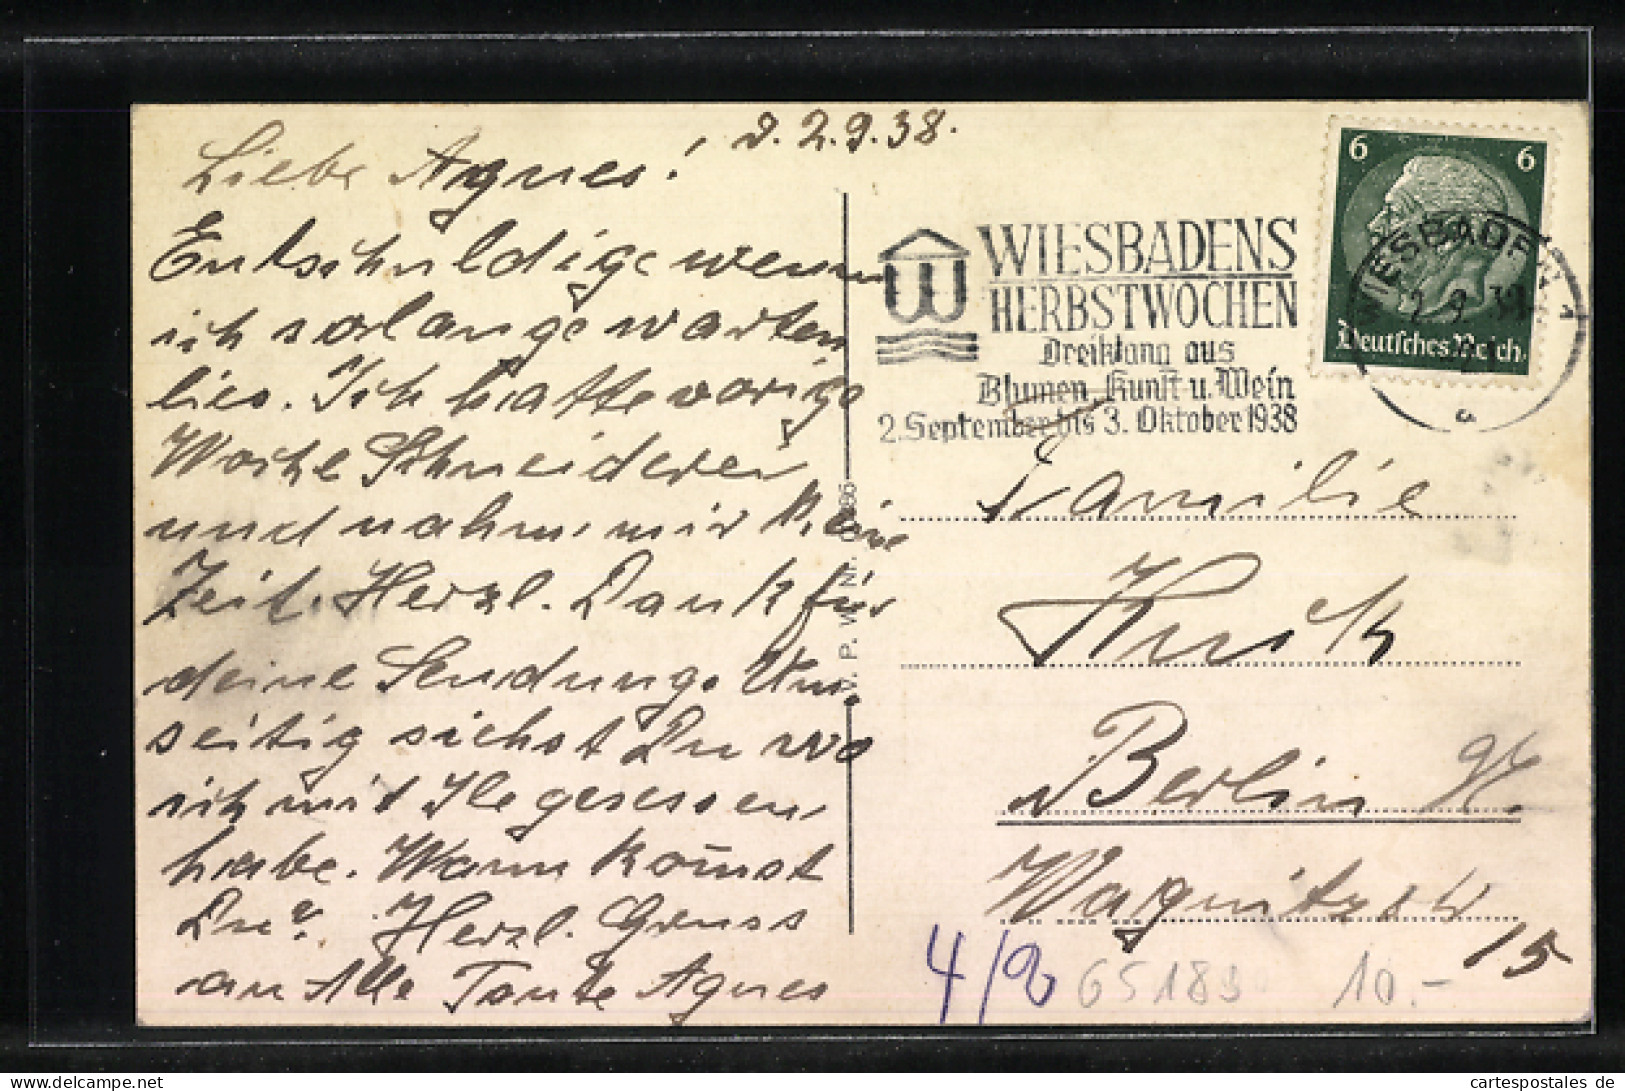 d. 2.9.38.
Liebe Agnes!
Entschuldige wenn
ich solange warten
lies. Ich hatte vorige
Woche Schneiderei
und nahm mir keine
Zeit. Herzl. Dank für
deine Sendung. Um-
seitig siehst Du wo
ich mit Ile gesessen
habe. Wann kom̄st
Du? Herzl. Gruss
an Alle Tante Agnes
W
WIESBADENS
HERBSTWOCHEN
Dreiklang aus
Blumen, Kunst u. Wein
2. September bis 3. Oktober 1938
6 6
Deutsches Reich
WIESBADEN 1
2.9.38
Familie
Berlin
15
4/2
65183
10.-
cartespostales de